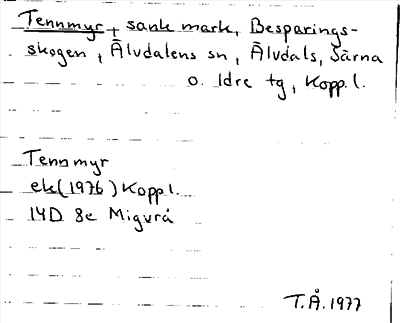 Tennmyr + sank mark, Besparings-
skogen, Älvdalens sn, Älvdals, Särna
o. Idre tg, Kopp.l.
Tennmyr
ek(1976) Kopp l.
14D 8e Migurå
T.Å. 1977